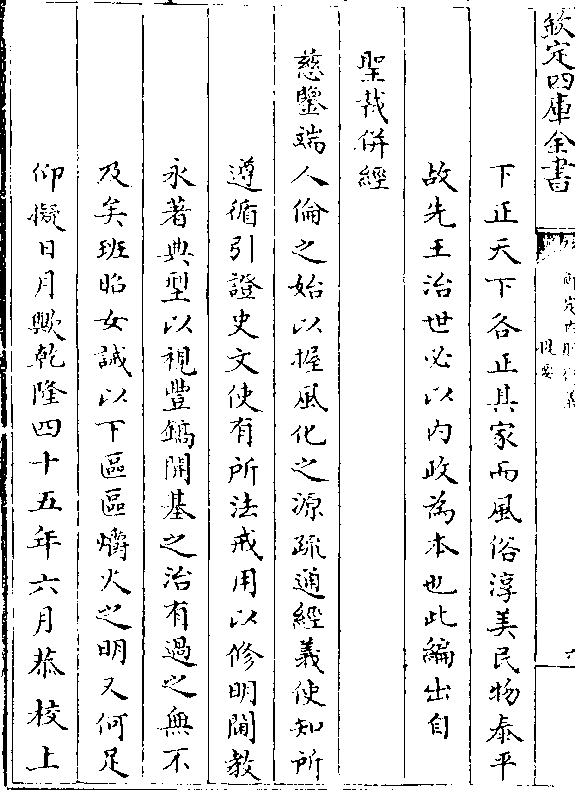 欽定四庫全書
提要
下正天下各正其家而風俗淳美民物泰平
故先王治世必以內政為本也此編出自
聖裁併經
慈鑒端人倫之始以握風化之源疏通經義使知所
遵循引證史文使有所法戒用以修明閫教
永著典型以視豐鎬開基之治有過之無不
及矣班昭女誡以下區區爝火之明又何足
仰擬日月歟乾隆四十五年六月恭校上